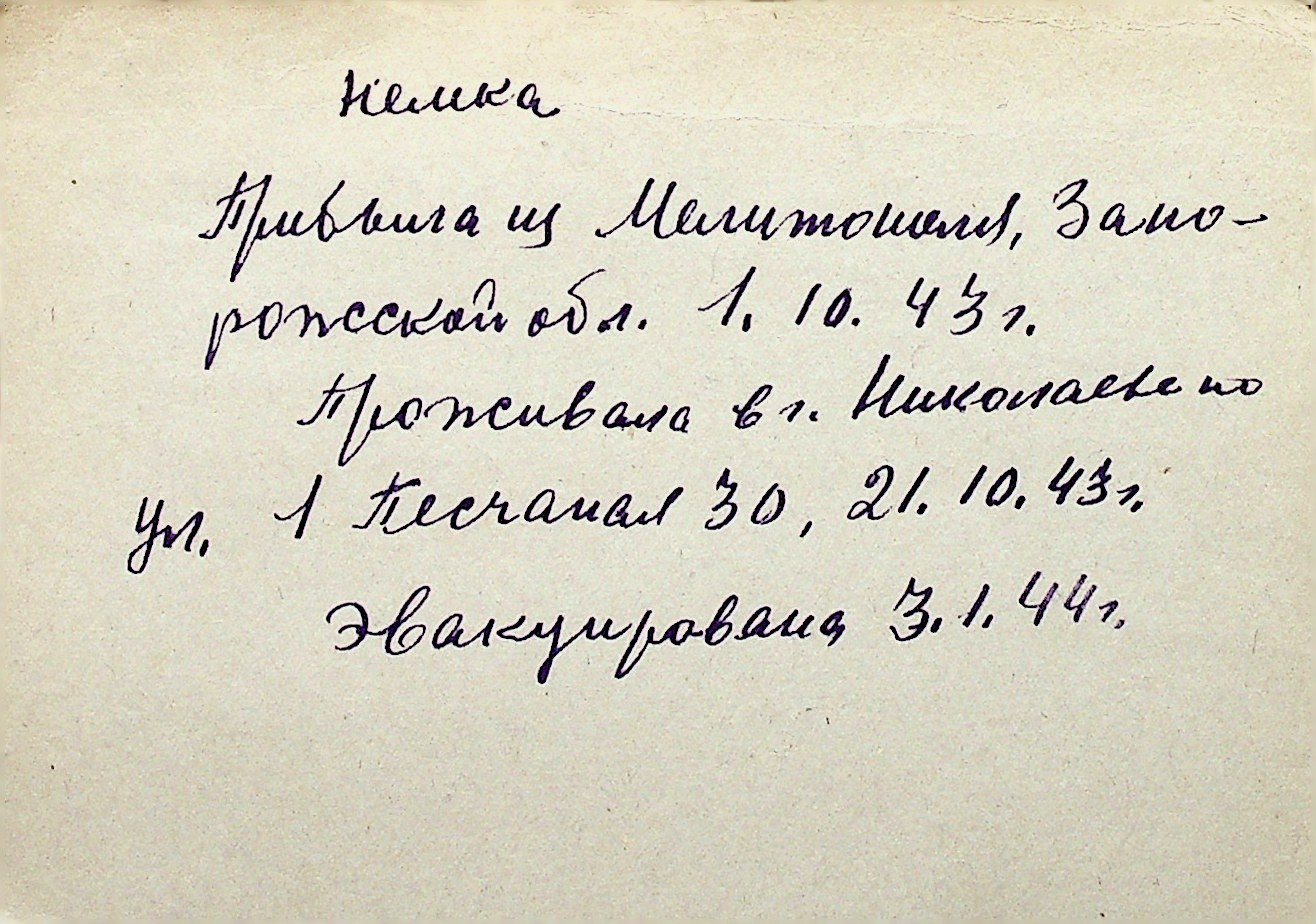 немка
Прибыла из Мелитополя, Запо-
рожской обл. 1. 10. 43 г.
Проживала в г. Николаеве по
ул. 1 Песчаная 30, 21. 10. 43 г.
Эвакуирована 3. 1. 44 г.